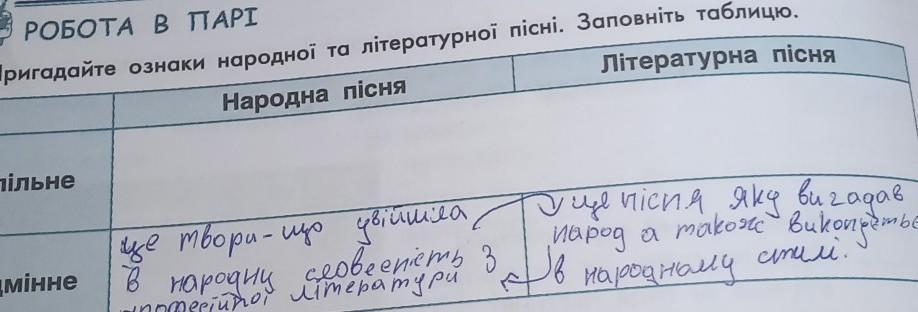 РОБОТА В ПАРІ
Пригадайте ознаки народної та літературної пісні. Заповніть таблицю.
Народна пісня
Літературна пісня
пільне
мінне
це твори-що увійшла
в народну словесність з
професійної літератури
це пісня яку вигадав
народ а також виконується
в народному стилі.